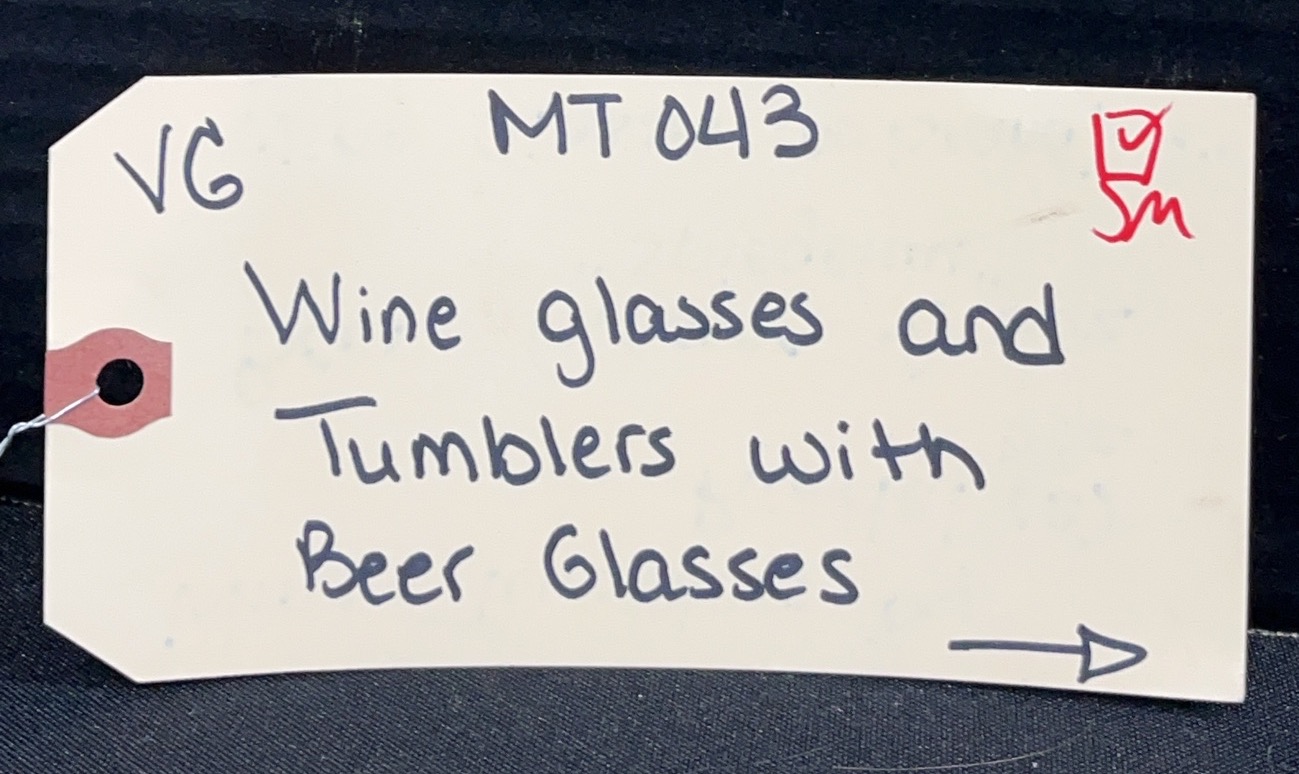 VG
MT 043
Sm
Wine glasses and
Tumblers with
Beer Glasses